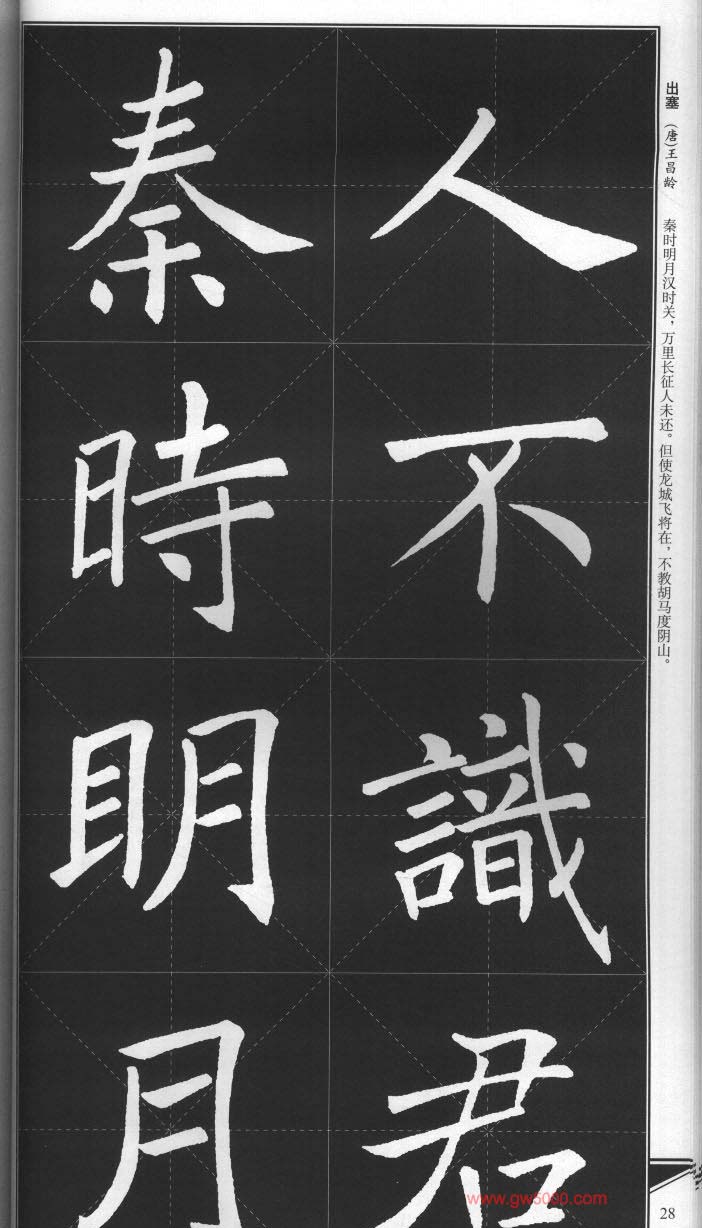 出塞 (唐)王昌龄
秦时明月汉时关，万里长征人未还。但使龙城飞将在，不教胡马度阴山。
人不識君
秦時明月
www.gw5080.com
28